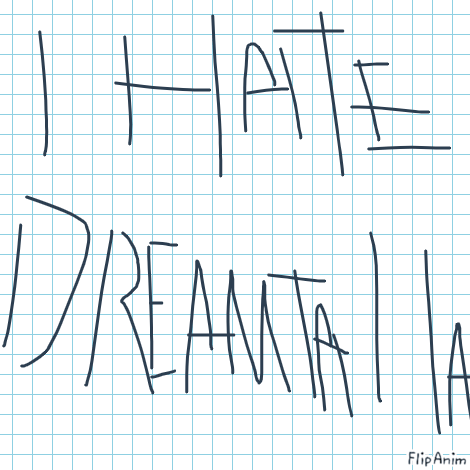 I HATE
DREAMTALIA
FlipAnim